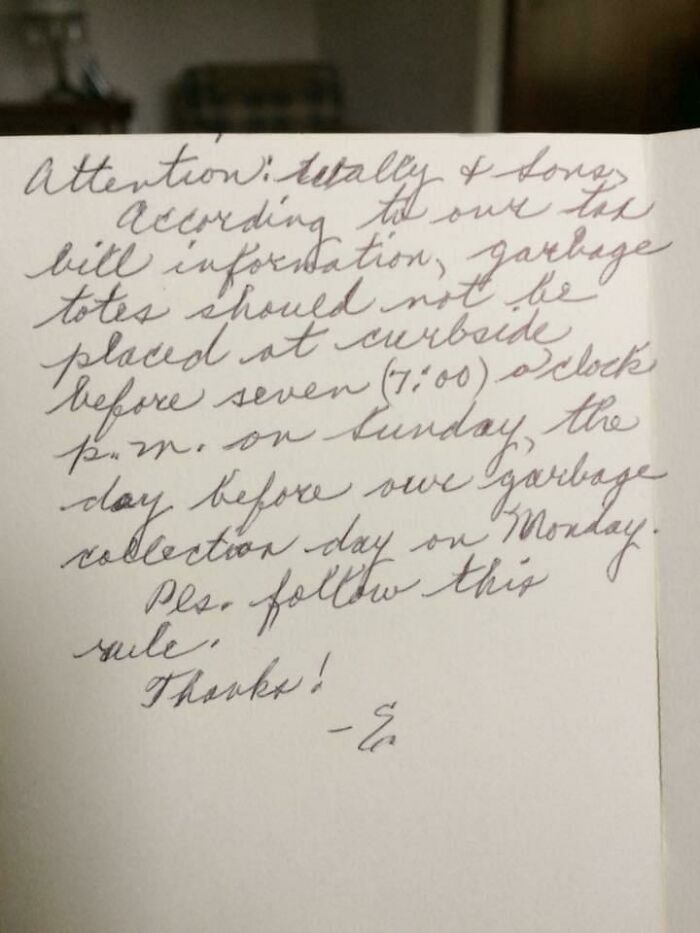 Attention: Wally & Sons,
According to our tax
bill information, garbage
totes should not be
placed at curbside
before seven (7:00) o'clock
p.m. on Sunday, the
day before our garbage
collection day on Monday.
Pls. follow this
rule.
Thanks!
- E